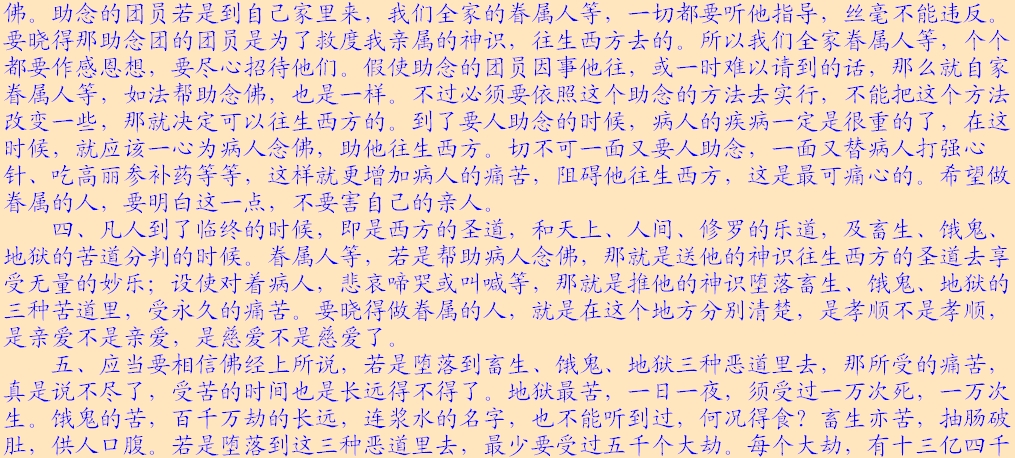 佛。助念的团员若是到自己家里来，我们全家的眷属人等，一切都要听他指导，丝毫不能违反。
要晓得那助念团的团员是为了救度我亲属的神识，往生西方去的。所以我们全家眷属人等，个个
都要作感恩想，要尽心招待他们。假使助念的团员因事他往，或一时难以请到的话，那么就自家
眷属人等，如法帮助念佛，也是一样。不过必须要依照这个助念的方法去实行，不能把这个方法
改变一些，那就决定可以往生西方的。到了要人助念的时候，病人的疾病一定是很重的了，在这
时候，就应该一心为病人念佛，助他往生西方。切不可一面又要人助念，一面又替病人打强心
针、吃高丽参补药等等，这样就更增加病人的痛苦，阻碍他往生西方，这是最可痛心的。希望做
眷属的人，要明白这一点，不要害自己的亲人。
四、凡人到了临终的时候，即是西方的圣道，和天上、人间、修罗的乐道，及畜生、饿鬼、
地狱的苦道分判的时候。眷属人等，若是帮助病人念佛，那就是送他的神识往生西方的圣道去享
受无量的妙乐；设使对着病人，悲哀啼哭或叫喊等，那就是推他的神识堕落畜生、饿鬼、地狱的
三种苦道里，受永久的痛苦。要晓得做眷属的人，就是在这个地方分别清楚，是孝顺不是孝顺，
是亲爱不是亲爱，是慈爱不是慈爱了。
五、应当要相信佛经上所说，若是堕落到畜生、饿鬼、地狱三种恶道里去，那所受的痛苦，
真是说不尽了，受苦的时间也是长远得不得了。地狱最苦，一日一夜，须受过一万次死，一万次
生。饿鬼的苦，百千万劫的长远，连浆水的名字，也不能听到过，何况得食？畜生亦苦，抽肠破
肚，供人口腹。若是堕落到这三种恶道里去，最少要受过五千个大劫。每个大劫，有十三亿四千